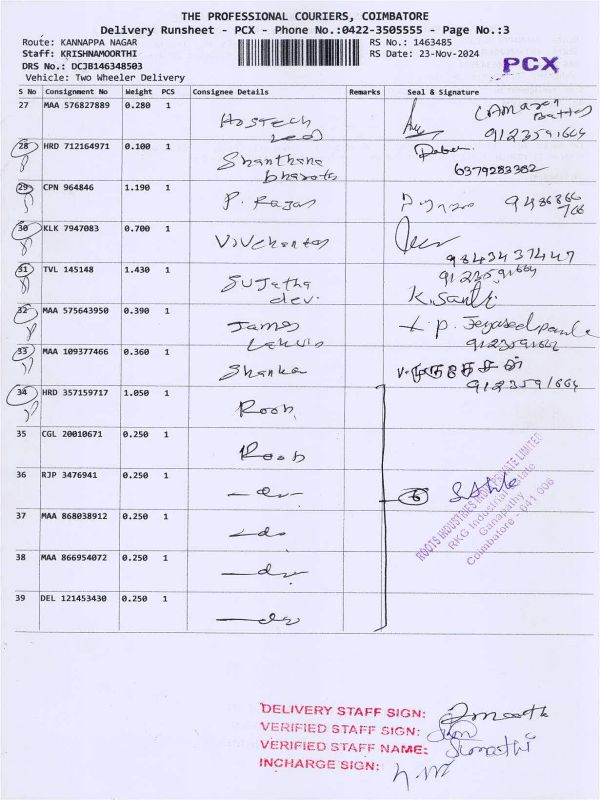 THE PROFESSIONAL COURIERS, COIMBATORE
Delivery Runsheet - PCX - Phone No.:0422-3505555 - Page No.:3
Route: KANNAPPA NAGAR
Staff: KRISHNAMOORTHI
DRS No.: DCJB146348503
Vehicle: Two Wheeler Delivery
RS No.: 1463485
RS Date: 23-Nov-2024
PCX
S No Consignment No Weight PCS Consignee Details Remarks Seal & Signature
27 MAA 576827889 0.280 1 Hostech
9123591664
28 HRD 712164971 0.100 1 Shanthana bharath
6379283382
29 CPN 964846 1.190 1 P. Rajan
30 KLK 7947083 0.700 1
9843437447
31 TVL 145148 1.430 1 Sujatha devi
9123591664
K. Santhi
32 MAA 575643950 0.390 1 James
33 MAA 109377466 0.360 1 Shanka
9123591664
34 HRD 357159717 1.050 1 Roots
35 CGL 20010671 0.250 1 Roots
36 RJP 3476941 0.250 1 —do—
6
37 MAA 868038912 0.250 1 —do—
38 MAA 866954072 0.250 1 —do—
39 DEL 121453430 0.250 1 —do—
ROOTS INDUSTRIES INDIA PRIVATE LIMITED
RKG Industrial Estate
Ganapathy
Coimbatore - 641 006
DELIVERY STAFF SIGN:
VERIFIED STAFF SIGN:
VERIFIED STAFF NAME:
INCHARGE SIGN: